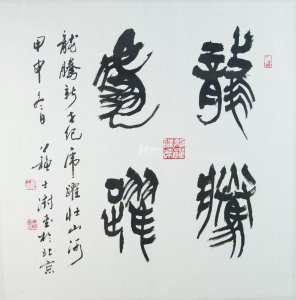 龍騰
虎躍
龍騰新世紀虎躍壯山河
甲申冬日蘇士澍書於北京